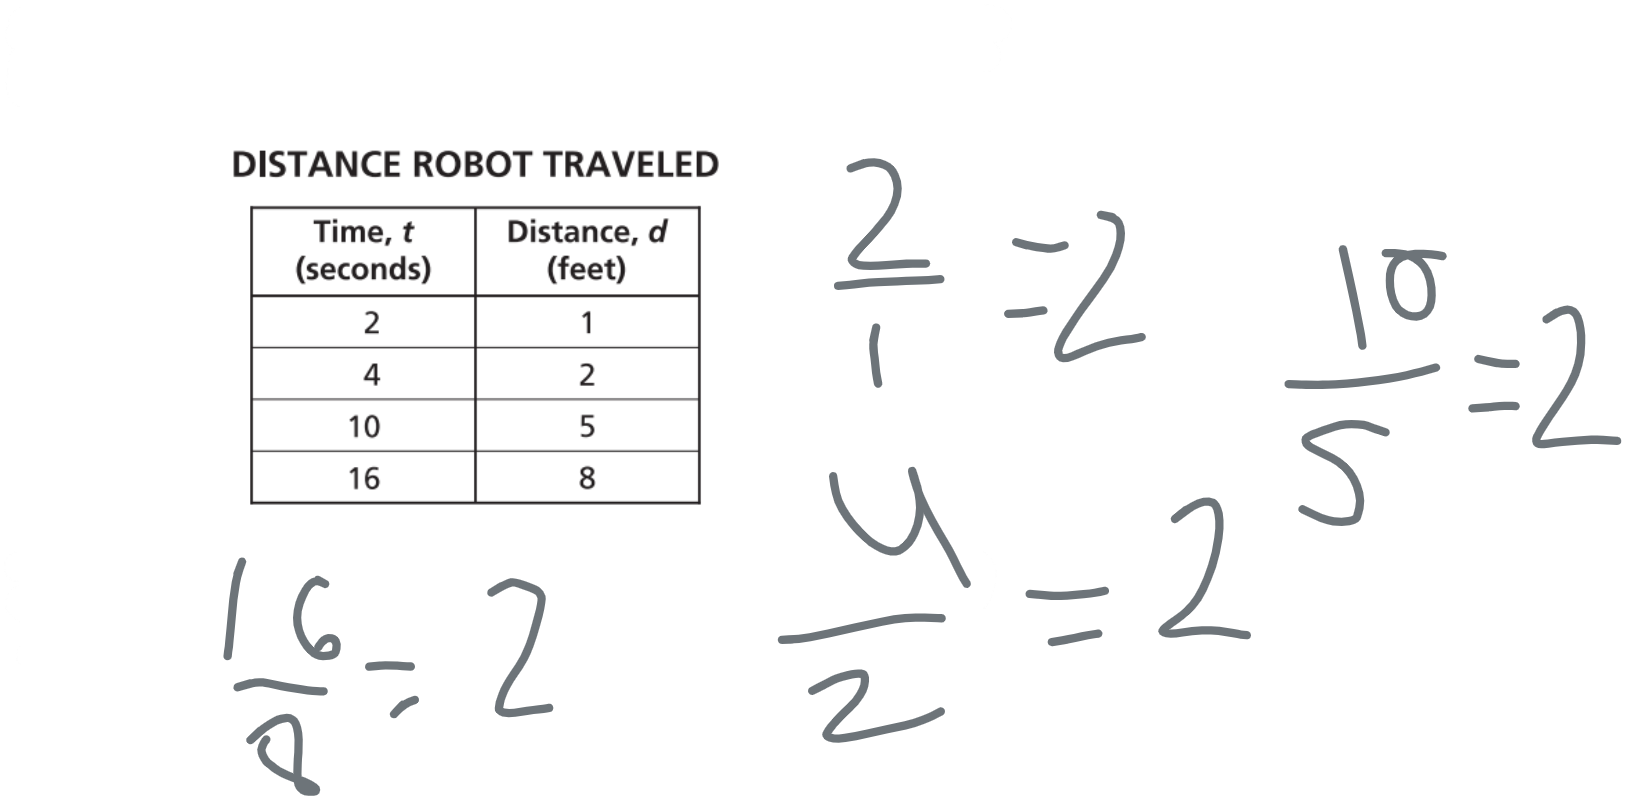 DISTANCE ROBOT TRAVELED
Time, t (seconds) Distance, d (feet)
2 1
4 2
10 5
16 8
2/1 = 2
10/5 = 2
4/2 = 2
16/8 = 2